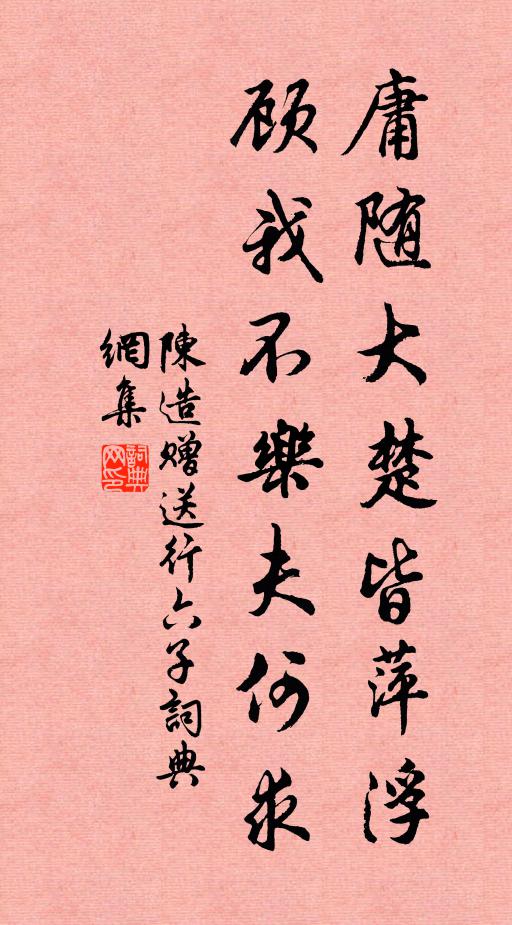 庸随大楚皆萍浮
顾我不樂夫何求
陳造赠送行六子詞典
網集
詞典网印